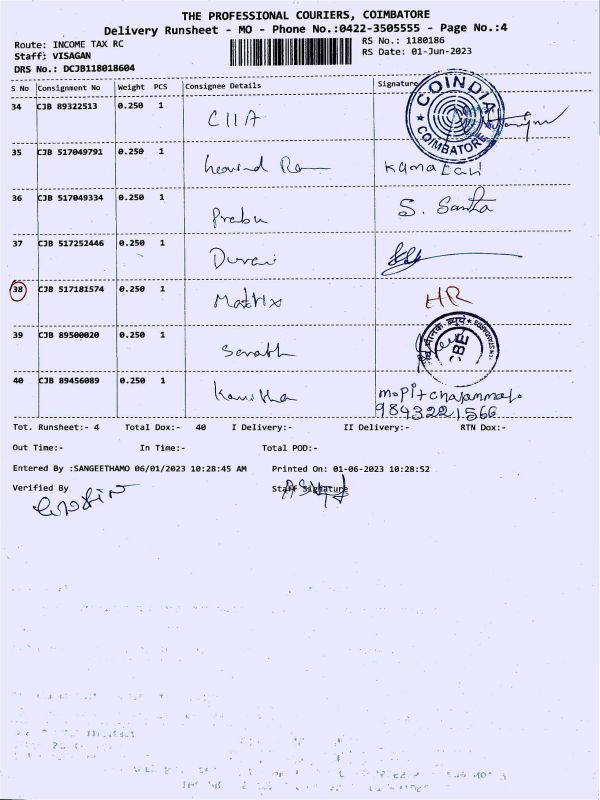 THE PROFESSIONAL COURIERS, COIMBATORE
Delivery Runsheet - MO - Phone No.:0422-3505555 - Page No.:4
Route: INCOME TAX RC
RS No.: 1180186
Staff: VISAGAN
RS Date: 01-Jun-2023
DRS No.: DCJB118018604
S No Consignment No Weight PCS Consignee Details Signature
34 CJB 89322513 0.250 1 CIIA
COINDIA
COIMBATORE
35 CJB 517049791 0.250 1
36 CJB 517049334 0.250 1 Prabu S. Santha
37 CJB 517252446 0.250 1 Durai
38 CJB 517181574 0.250 1 Matrix HR
39 CJB 89500020 0.250 1 Sarath
40 CJB 89456089 0.250 1 Kanitha
9843221566
Tot. Runsheet:- 4 Total Dox:- 40 I Delivery:- II Delivery:- RTN Dox:-
Out Time:- In Time:- Total POD:-
Entered By :SANGEETHAMO 06/01/2023 10:28:45 AM Printed On: 01-06-2023 10:28:52
Verified By Staff Signature